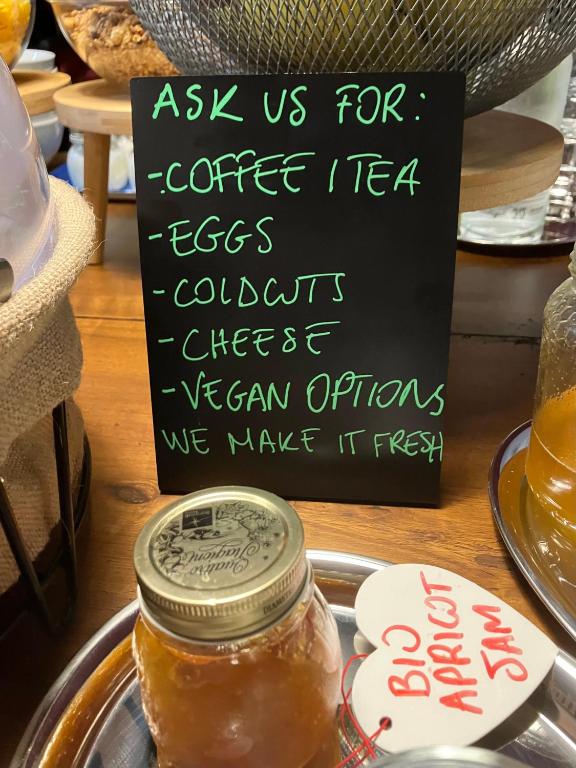 ASK US FOR:
-COFFEE / TEA
-EGGS
-COLDCUTS
-CHEESE
-VEGAN OPTIONS
WE MAKE IT FRESH
Quattro
Stagioni
BIO
APRICOT
JAM